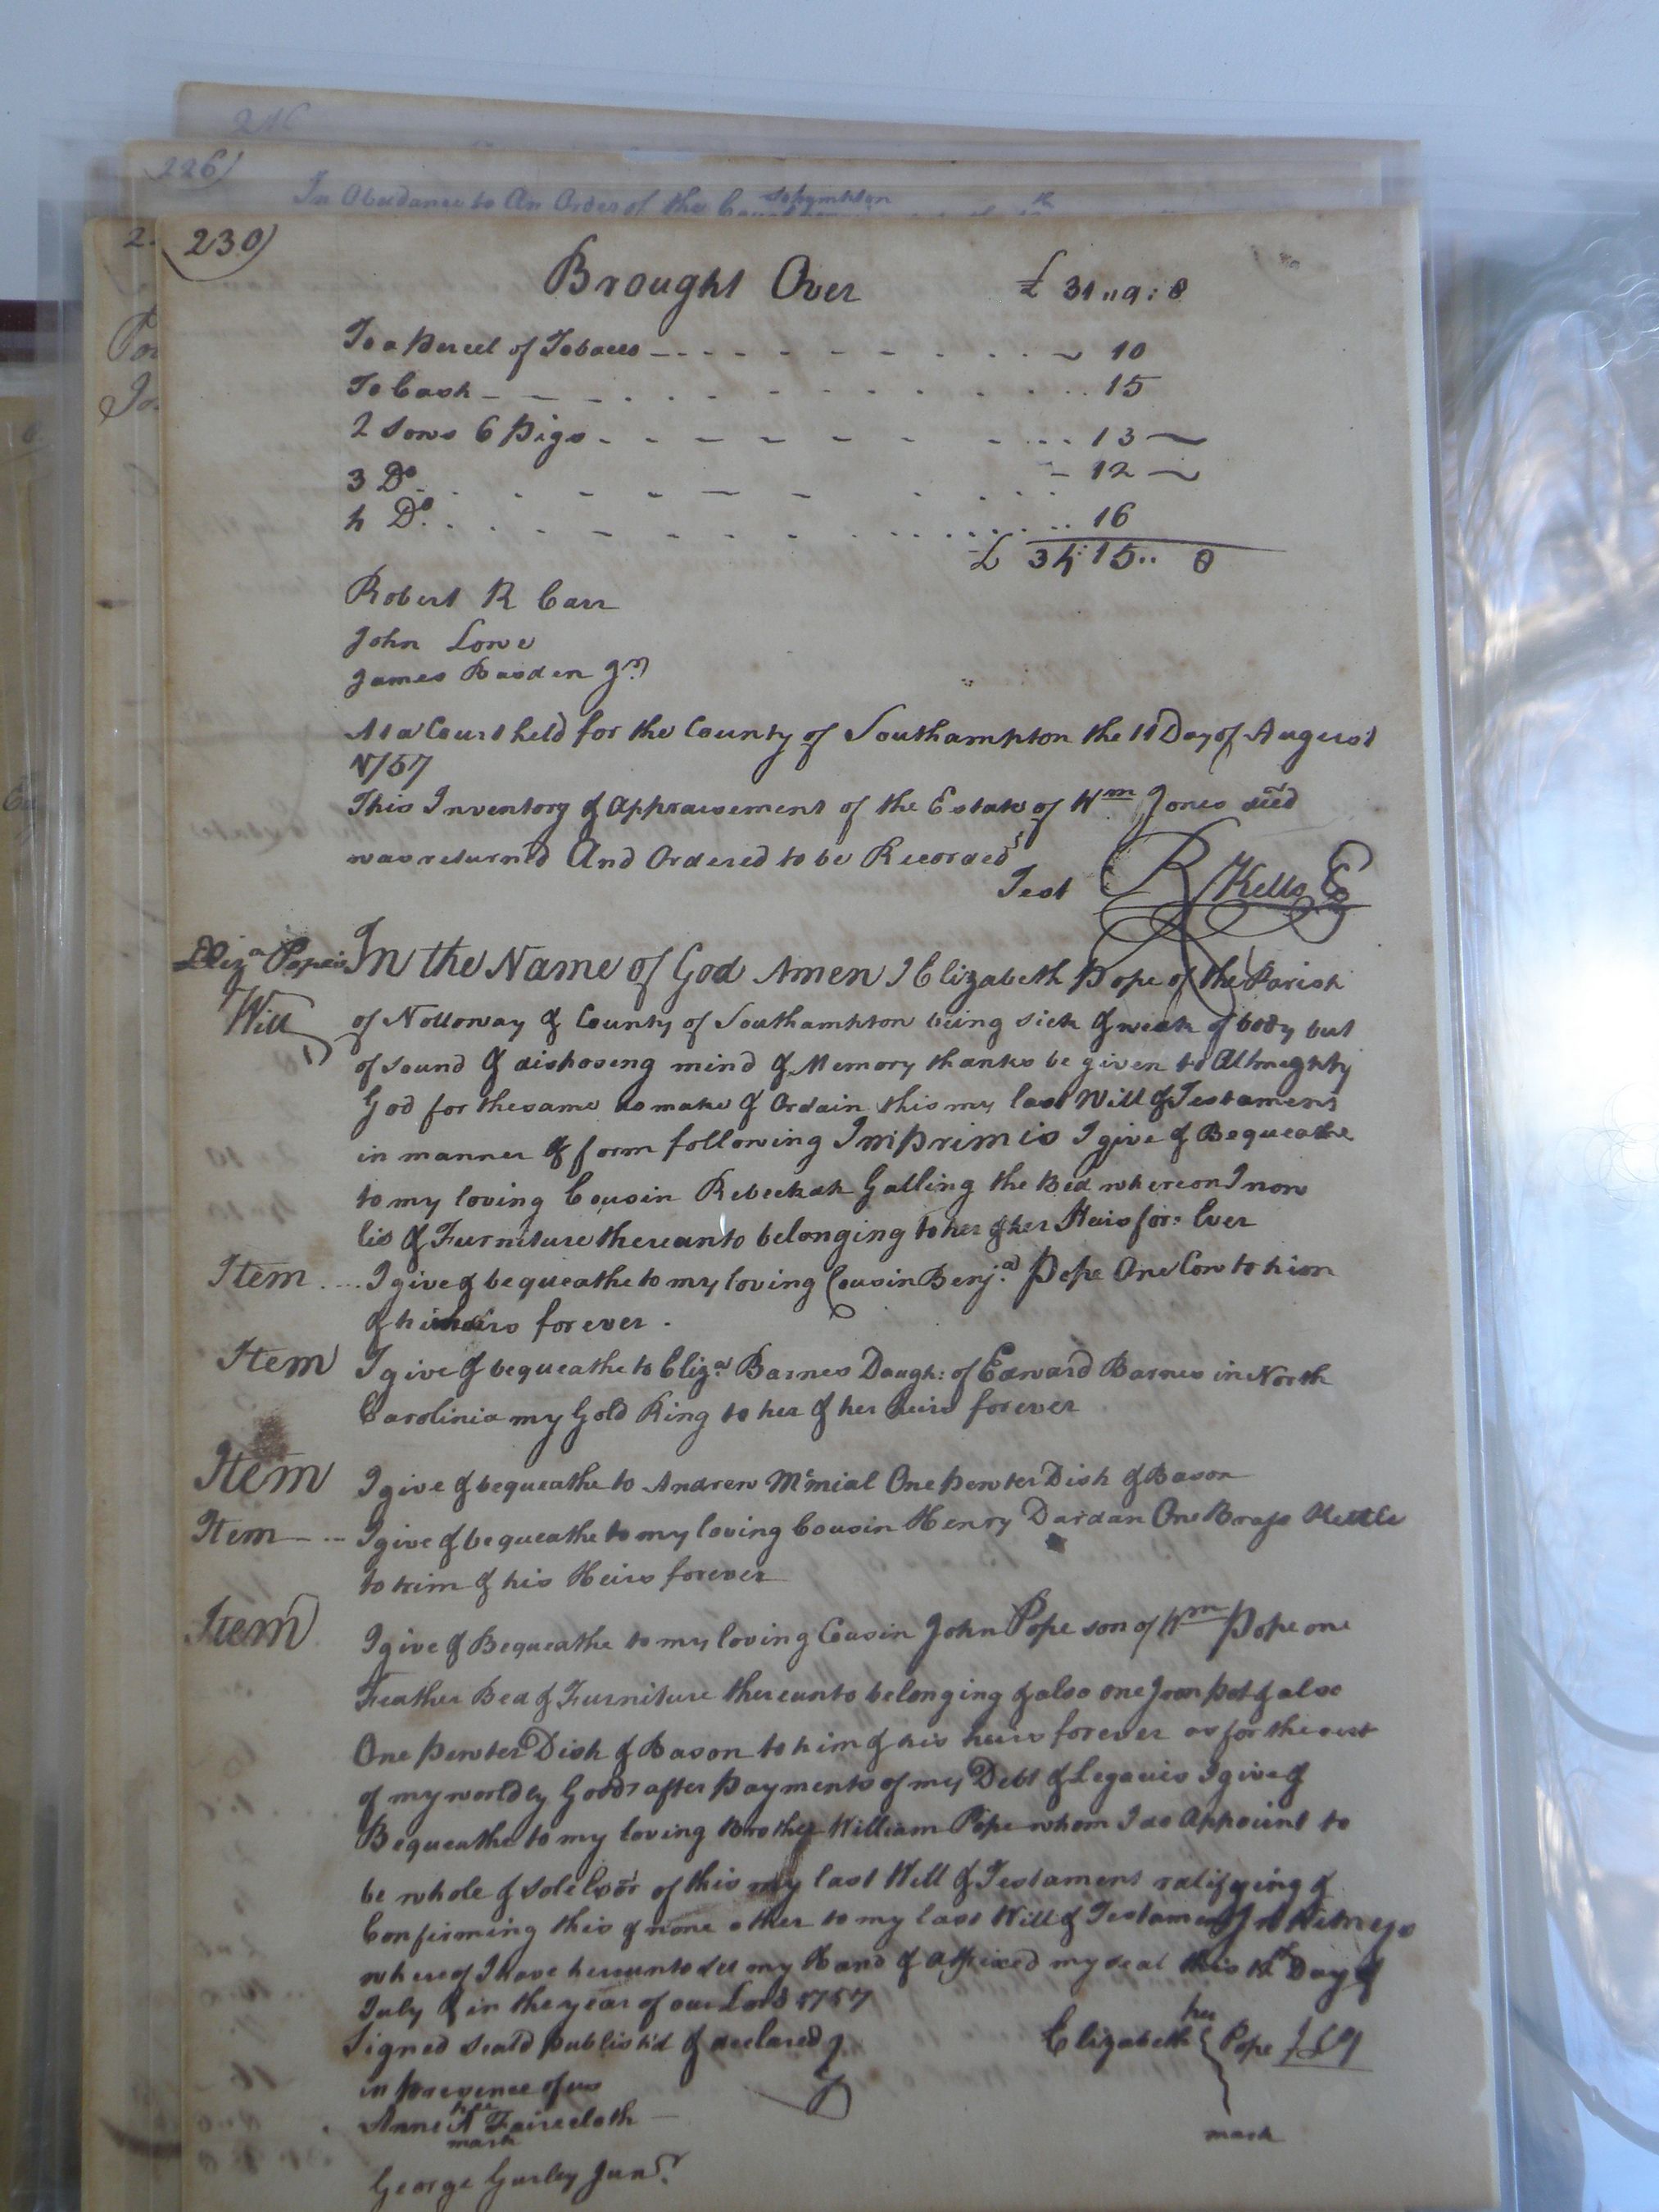 246
226)
In Obedience to An Order of the
Sohampton
th
2
230)
Brought Over £ 31 ,, 9 : 8
To a Parcel of Tobacco - - - - - - - - - - 10
To Cash - - - - - - - - - - - 15
2 Sows 6 Pigs - - - - - - - - - - 13 ~
3 Do. - - - - - - - - - 12 ~
4 Do. - - - - - - - - - 16
£ 34 : 15 .. 8
Robert R Carr
John Lowe
James Basden Jr.
At a Court held for the County of Southampton the 11 Day of August
1757
This Inventory & Appraisement of the Estate of Wm Jones decd
was returnd And Ordered to be Recorded
Test R Kello
Eliza Popes
Will
In the Name of God Amen I Elizabeth Pope of the Parish
of Nottoway & County of Southampton being sick & weak of body but
of sound & disposing mind & Memory thanks be given to Allmighty
God for the same do make & Ordain this my last Will & Testament
in manner & form following Imprimis I give & Bequeathe
to my loving Cousin Rebeckah Galling the Bed whereon I now
lie & Furniture thereunto belonging to her & her Heirs for: Ever
Item .... I give & bequeathe to my loving Cousin Benja. Pope One Cow to him
& his heirs forever .
Item I give & bequeathe to Eliza. Barnes Daugh: of Edward Barnes in North
Carolinia my Gold Ring to her & her heirs forever
Item I give & bequeathe to Andrew Mcmial One Pewter Dish & Bason
Item - - - I give & bequeathe to my loving Cousin Henry Dardan One Brass Kettle
to him & his Heirs forever
Item I give & Bequeathe to my loving Cousin John Pope son of Wm Pope one
Feather Bed & Furniture thereunto belonging & also one Iron Pot & also
One Pewter Dish & Bason to him & his heirs forever as for the rest
of my worldly Goods after Payments of my Debt & Legacies I give &
Bequeathe to my loving Brother William Pope whom I do Appoint to
be whole & sole Exor of this my last Will & Testament ratifying &
Confirming this & none other to my last Will & Testament In Witness
whereof I have hereunto set my Hand & affixed my seal this Day of
July & in the year of our Lord 1757
Signed seald publishd & declared
in presence of us
her
Elizabeth Pope
mark
her
Anne A Faircloth
mark
George Gurley Junr.